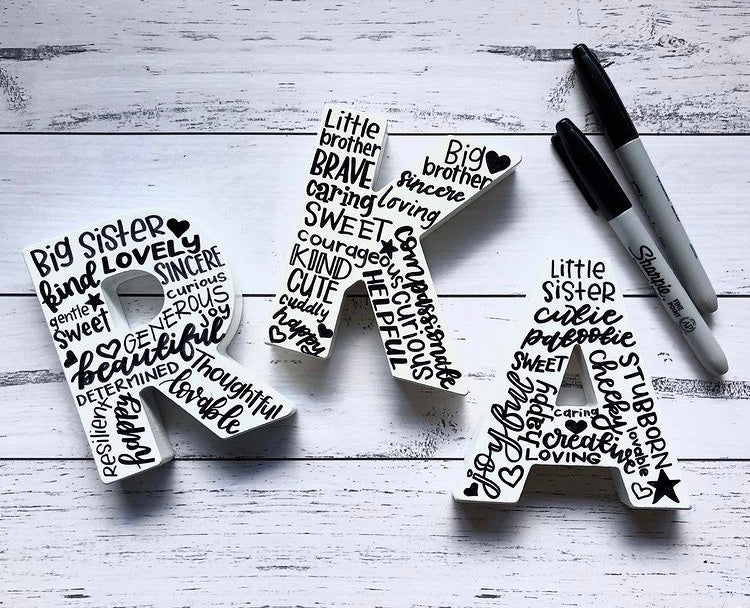 BIG SISTER
LOVELY
kind
SINCERE
gentle
curious
sweet
GENEROUS
joy
beautiful
DETERMINED
Thoughtful
lovable
Resilient
happy
Little
brother
BRAVE
caring
SWEET
courageous
KIIND
CUTE
cuddly
happy
Big
brother
sincere
loving
compassionate
CURIOUS
HELPFUL
Little
SISTER
cutie
patootie
SWEET
cheeky
STUBBORN
happy
joyful
caring
creative
lovable
LOVING
Sharpie